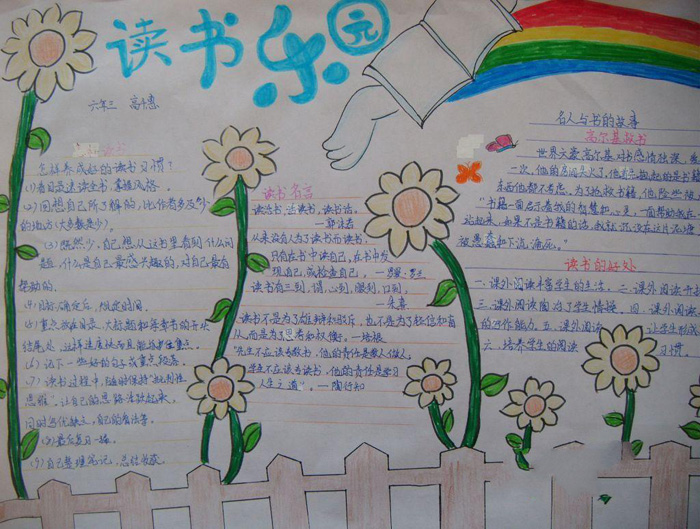 读书乐园
六年三 高千惠
怎样养成好的读书习惯?
(1)看目录速读全书,掌握风格.
(2)回想自己所了解的,比作者多及少
的地方(大多数是少).
(3)既然少,自己想从这书里看到什么问
题,什么是自己最感兴趣的,对自己最有
帮助的.
(4)目标确定后,限定时间.
(5)重点放在目录,大标题和每章节的开头
结尾处,这样速度快而且能够抓住重点.
(6)记下一些好的句子或重点段落.
(7)读书过程中,随时保持"批判性
思维",让自己的思路活跃起来,
同时当优缺点,自己的看法等.
(8)最后复习一遍.
(9)自己整理笔记,总结收获.
读书名言
读活书,活读书,读书活.
—郭沫若
从来没有人为了读书而读书,
只有在书中读自己,在书中发
现自己,或检查自己。—罗曼·罗兰
读书有三到,谓心到,眼到,口到。
—朱熹
读书不是为了雄辩和驳斥,也不是为了轻信和盲
从,而是为了思考和权衡。—培根
"先生不应该专教书,他的责任是教人做人;
学生不应该专读书,他的责任是学习
人生之道"。—陶行知
名人与书的故事
高尔基救书
世界文豪高尔基对书感情独深,爱
一次,他的房间失火了,他首先抱起的是书籍
东西他都不考虑。为了抢救书籍,他险些烧
"书籍一面启示着我的智慧和心灵,一面帮助我在一
站起来,如果不是书籍的话,我就沉没在这片泥塘
被愚蠢和下流淹死。"
读书的好处
一.课外阅读丰富学生的生活.二.课外阅读开拓
三.课外阅读陶冶了学生情操.四.课外阅读
的写作能力.五.课外阅读 让学生形成
六.培养学生的阅读 习惯.